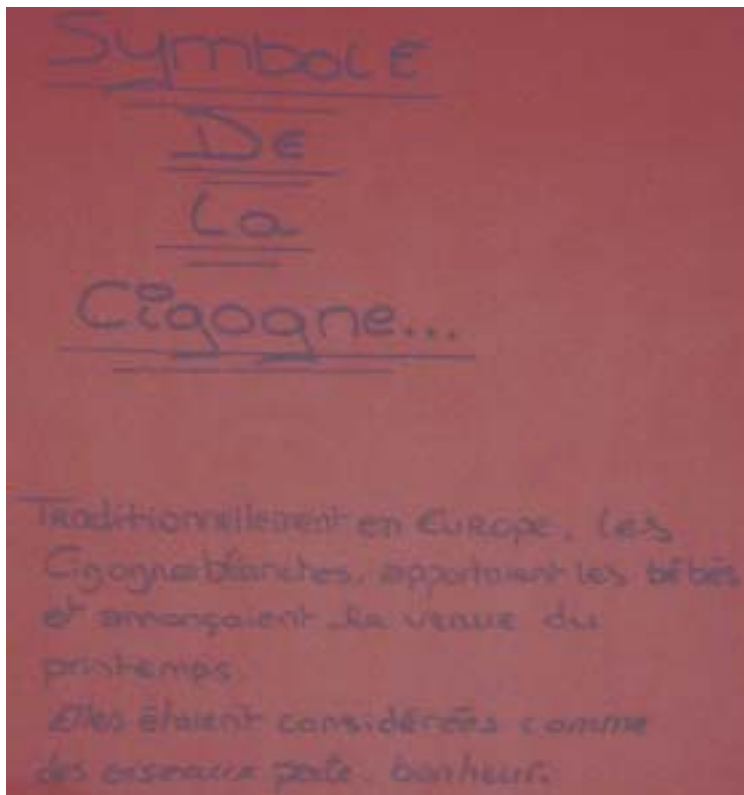 Symbole
De
La
Cigogne...
Traditionnellement en Europe, les
Cigognes blanches, apportaient les bébés
et annonçaient la venue du
printemps.
Elles étaient considérées comme
des oiseaux porte bonheur.